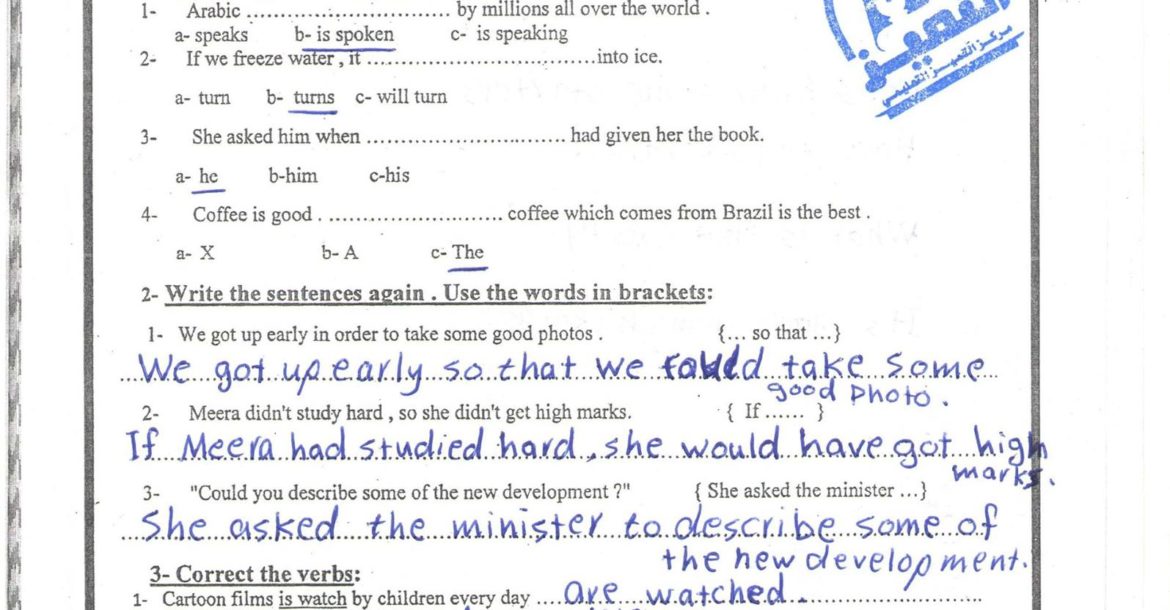 1- Arabic .............................. by millions all over the world .
a- speaks b- is spoken c- is speaking
2- If we freeze water , it .................................into ice.
a- turn b- turns c- will turn
3- She asked him when ............................. had given her the book.
a- he b-him c-his
4- Coffee is good . ......................... coffee which comes from Brazil is the best .
a- X b- A c- The
2- Write the sentences again . Use the words in brackets:
1- We got up early in order to take some good photos . {... so that ...}
We got up early so that we could take some
good photo.
2- Meera didn't study hard , so she didn't get high marks. { If ...... }
If Meera had studied hard, she would have got high
marks.
3- "Could you describe some of the new development ?" { She asked the minister ...}
She asked the minister to describe some of
the new development.
3- Correct the verbs:
1- Cartoon films is watch by children every day ....are watched.
التميز
مركز التميز التعليمي